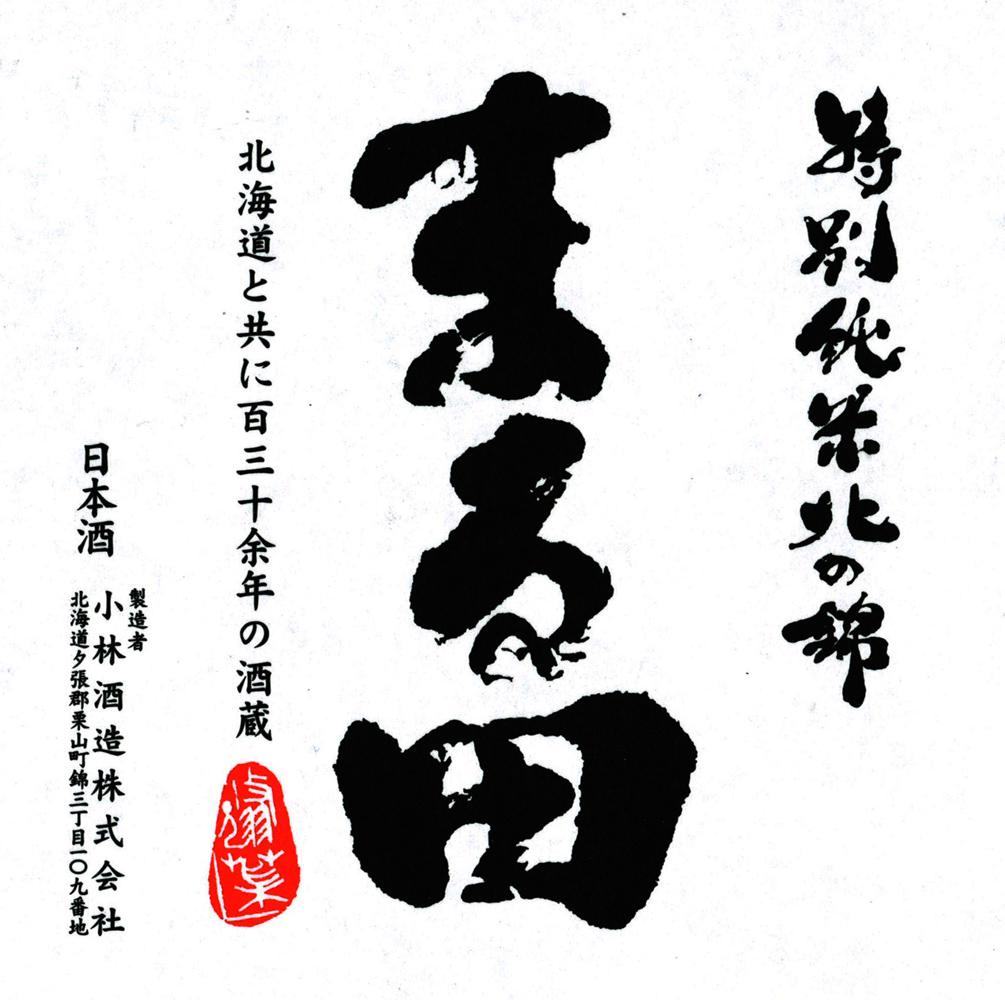 特別純米北の錦
まる田
北海道と共に百三十余年の酒蔵
日本酒
製造者
小林酒造株式会社
北海道夕張郡栗山町錦三丁目一〇九番地